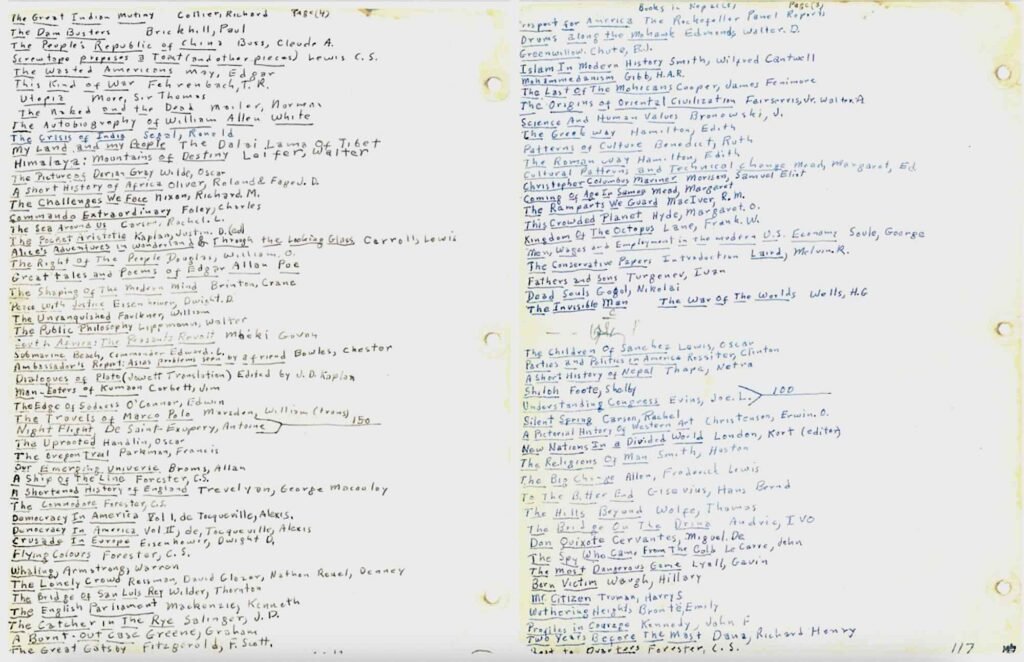 The Great Indian Mutiny Collier, Richard Page(4)
The Dam Busters Brickhill, Paul
The People's Republic of China Buss, Claude A.
Screwtape proposes a Toast (and other pieces) Lewis C.S.
The Wasted Americans May, Edgar
This Kind of War Fehrenbach, T.R.
Utopia More, Sir Thomas
The Naked and the Dead Mailer, Norman
The Autobiography of William Allen White
The Crisis of India Segal, Ronald
My Land and my People The Dalai Lama Of Tibet
Himalaya: Mountains of Destiny Loifer, Walter
The Picture of Dorian Gray Wilde, Oscar
A Short History of Africa Oliver, Roland & Fage J.D.
The Challenges We Face Nixon, Richard M.
Commando Extraordinary Foley, Charles
The Sea Around Us Carson, Rachel L.
The Pocket Aristotle Kaplan, Justin D. (ed)
Alice's Adventures in Wonderland & Through the Looking Glass Carroll, Lewis
The Right of The People Douglas, William, O.
Great tales and Poems of Edgar Allan Poe
The Shaping Of The Modern Mind Brinton, Crane
Peace With Justice Eisenhower, Dwight. D.
The Unvanquished Faulkner, William
The Public Philosophy Lippmann, Walter
South Africa: The Peasants Revolt Mbeki Govan
Submarine Beach, Commander Edward. L.
Ambassador's Report: Asias problems seen by a friend Bowles, Chester
Dialogues of Plato (Jowett Translation) Edited by J.D. Kaplan
Man-Eaters of Kumaon Corbett, Jim
The Edge Of Sadness O'Connor, Edwin
The Travels of Marco Polo Marsden, William (trans)
Night Flight De Saint-Exupery, Antoine 150
The Uprooted Handlin, Oscar
The Oregon Trail Parkman, Francis
Our Emerging Universe Broms, Allan
A Ship Of The Line Forester, C.S.
A Shortened History of England Trevelyan, George Macauley
The Commodore Forester, C.S.
Democracy In America Vol I, de Tocqueville, Alexis.
Democracy In America Vol II, de, Tocqueville, Alexis
Crusade In Europe Eisenhower, Dwight D.
Flying Colours Forester, C.S.
Whaling, Armstrong, Warren
The Lonely Crowd Reesman, David Glazer, Nathan Reuel, Denney
The Bridge Of San Luis Rey Wilder, Thornton
The English Parliament Mackenzie, Kenneth
The Catcher in The Rye Salinger, J.D.
A Burnt-Out Case Greene, Graham
The Great Gatsby Fitzgerald, F. Scott.
Books in Nepal Page(3)
Prospect for America The Rockefeller Panel Reports
Drums along the Mohawk Edmonds, Walter. D.
Greenwillow Chute, B.J.
Islam In Modern History Smith, Wilfred Cantwell
Mohammedanism Gibb, H.A.R.
The Last Of The Mohicans Cooper, James Fenimore
The Origins of Oriental Civilization Fairservis, Jr. Walter. A
Science And Human Values Bronowski, J.
The Greek Way Hamilton, Edith
Patterns of Culture Benedict, Ruth
The Roman Way Hamilton, Edith
Cultural Patterns and Technical Change Mead, Margaret, Ed
Christopher Columbus Mariner Morison, Samuel Eliot
Coming Of Age In Samoa Mead, Margaret
The Ramparts We Guard MacIver, R.M.
This Crowded Planet Hyde, Margaret. O.
Kingdom Of The Octopus Lane, Frank. W.
Men, Wages and Employment in the modern U.S. Economy Soule, George
The Conservative Papers Introduction Laird, Melvin. R.
Fathers and Sons Turgenev, Ivan
Dead Souls Gogol, Nikolai
The Invisible Man The War Of The Worlds Wells, H.G
The Children Of Sanchez Lewis, Oscar
Parties and Politics in America Rossiter, Clinton
A Short History of Nepal Thapa, Netra
Shiloh Foote, Shelby
Understanding Congress Evins, Joe. L. 100
Silent Spring Carson, Rachel
A Pictorial History Of Western Art Christensen, Erwin. O.
New Nations In a Divided World London, Kurt (editor)
The Religions Of Man Smith, Huston
The Big Change Allen, Frederick Lewis
To The Bitter End Gisevius, Hans Bernd
The Hills Beyond Wolfe, Thomas
The Bridge On The Drina Andric, IVO
Don Quixote Cervantes, Miguel. De
The Spy Who Came From The Cold Le Carre, John
The Most Dangerous Game Lyall, Gavin
Born Victim Waugh, Hillary
Mr Citizen Truman, Harry S
Wuthering Heights Brontë, Emily
Profiles in Courage Kennedy, John F
Two Years Before The Mast Dana, Richard Henry
Beat to Quarters Forester, C.S. 117